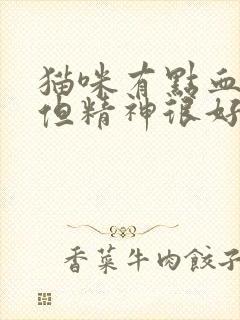 猫咪有點血
但精神很好
香菜牛肉餃子